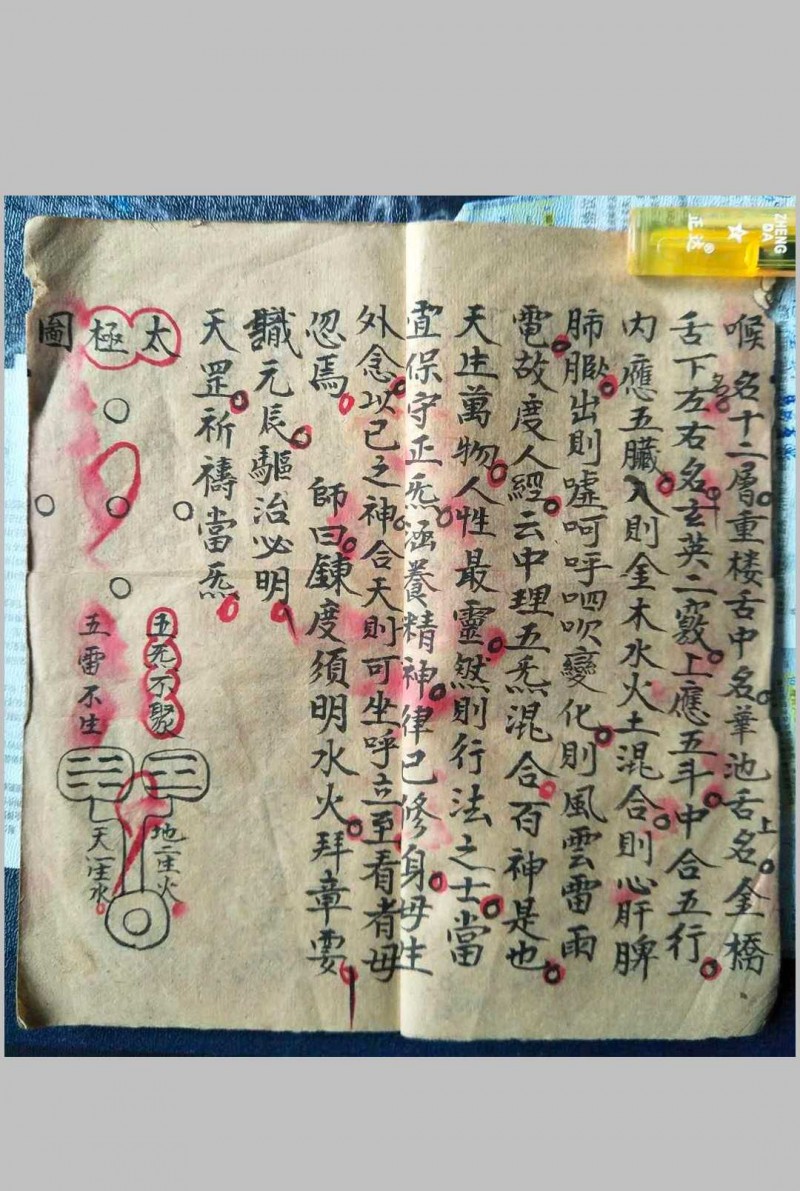 喉名十二層重楼舌中名華池舌上名金橋
舌下左右名名玄英二竅上應五斗中合五行
內應五臟入則金木水火土混合則心肝脾
肺腎出則嘘呵呼呬吹變化則風雲雷雨
電故度人經云中理五炁混合百神是也
天生萬物人性最靈然則行法之士當
宜保守正炁涵養精神律己修身毋生
外念以己之神合天則可坐呼立至看者毋
忽焉 師曰鍊度須明水火拜章要
識元辰驅治必明
天罡祈禱當炁
太極圖
五炁不聚
五雷不生
地二生火
天一生水
ZHENG DA
正达®